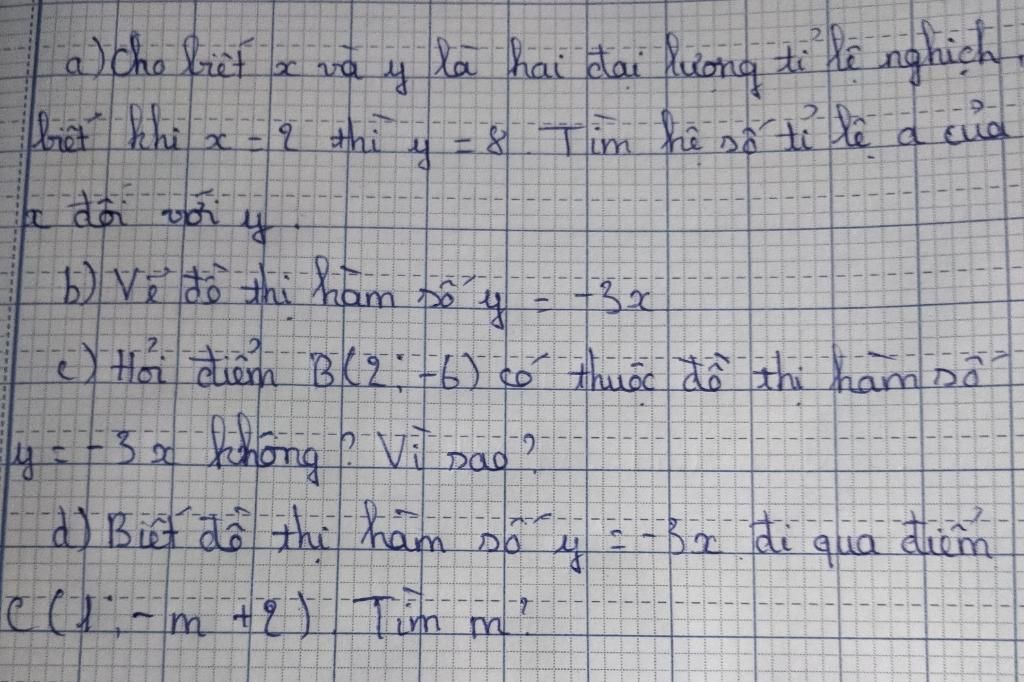 a) Cho biết x và y là hai đại lượng tỉ lệ nghịch.
biết khi x = 2 thì y = 8. Tìm hệ số tỉ lệ a của
x đối với y.
b) Vẽ đồ thị hàm số y = -3x
c) Hỏi điểm B(2; -6) có thuộc đồ thị hàm số
y = -3x không? Vì sao?
d) Biết đồ thị hàm số y = -3x đi qua điểm
C(1; -m +2) Tìm m?